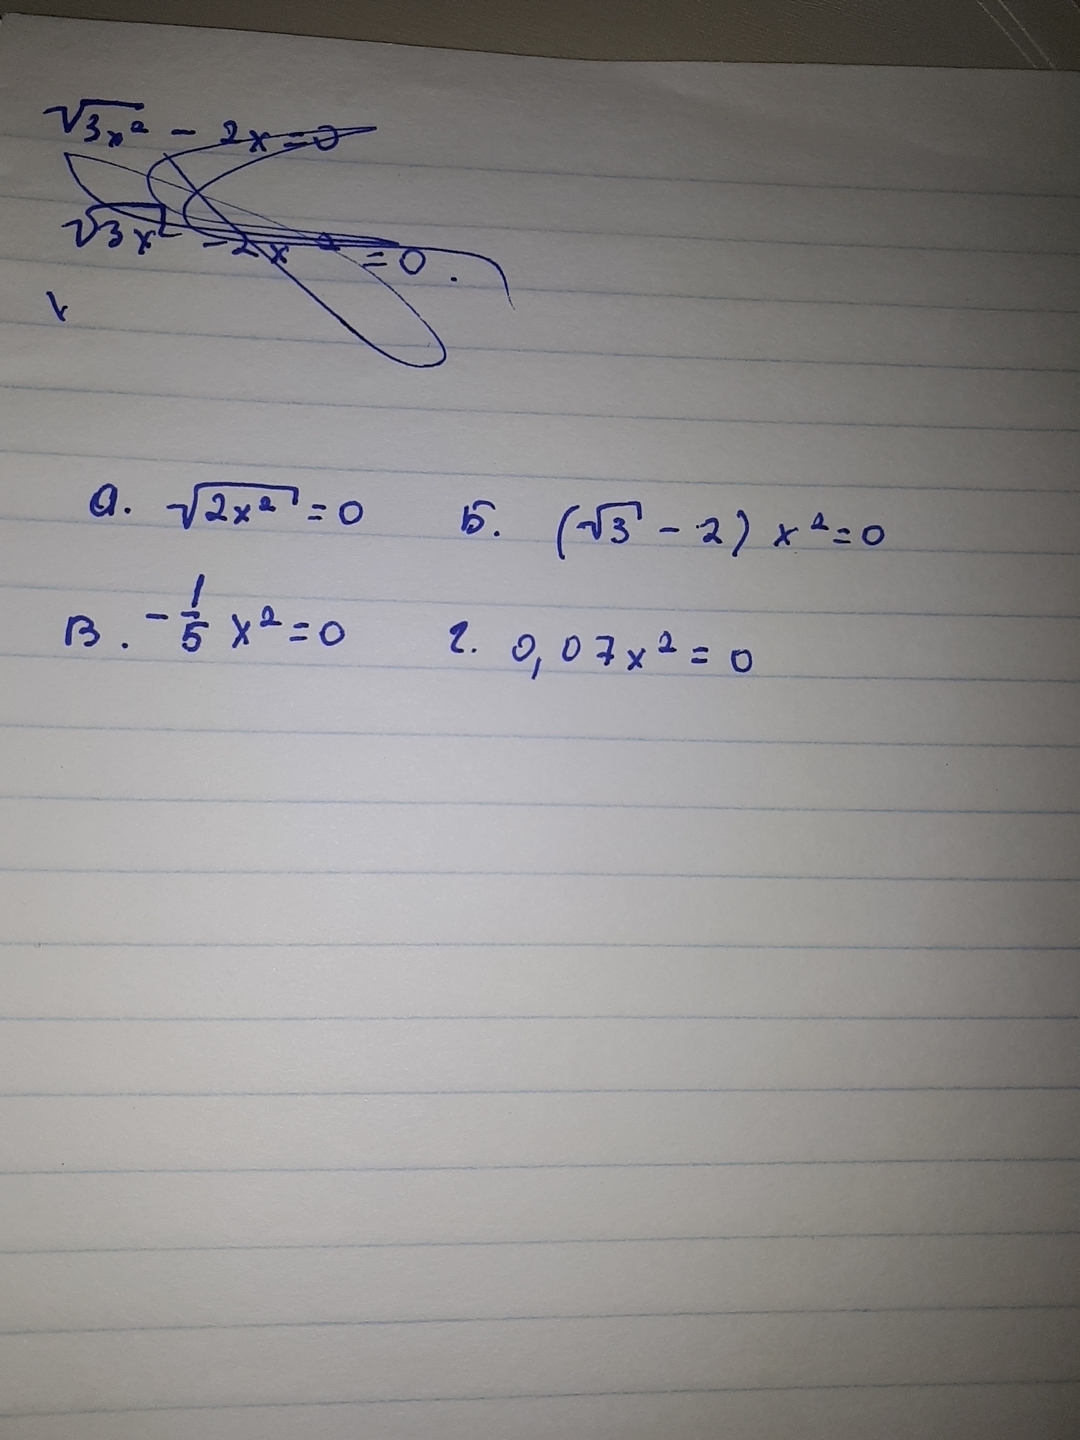 √3x² - 2x = 0
√3x² - 2x² = 0.
а. √2x² = 0 б. (√3 - 2) x² = 0
в. -1/5 x² = 0 г. 0,07x² = 0